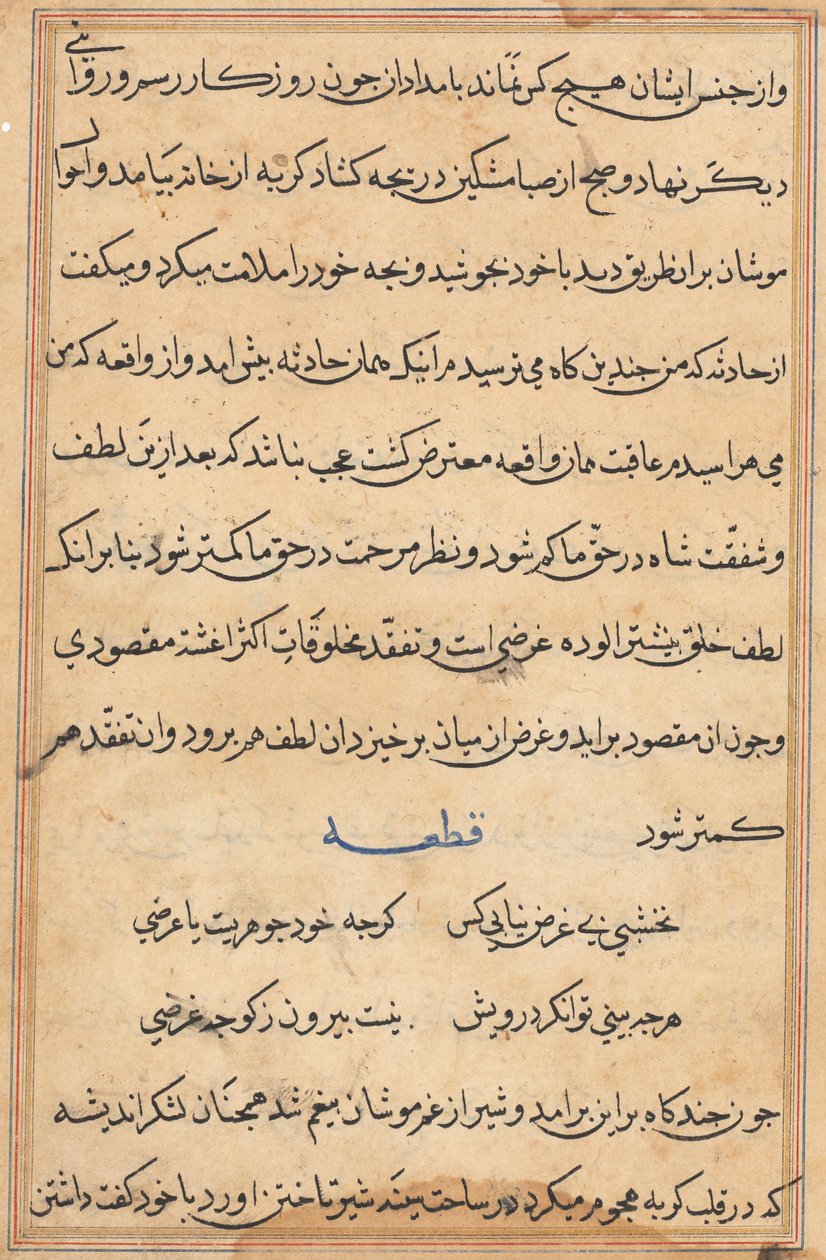 واز جنس ایشان هیچ کس نَمَاند بامدادان جون روزکار رسم ورق وا ینی
دیکَر نهاد و صبح از صبا مشکین دریجه کشاد کربه از خانه بَیامد و احوال
موشان بران طریق دید با خود بجوشید و بجه خود را ملامت میکرد و میکفت
از حادثه که من جندین کاه می ترسیدم اینک همان حادثه بیش امد و از واقعه که من
می هراسیدم عاقبت همان واقعه معترض کشت عجب نباشد که بعد ازین لطف
و شفقّت شاه در حقّ ما کم شود و نظر مرحمت در حق ما کمتر شود بنا برانکه
لطف خلق بیشتر الوده غرضی است و تفقّد مخلوقَاتِ اکثر اغشته مقصودی
و جون ان مقصود براید و غرض از میان برخیزد ان لطف هم برود و ان تفقّد هم
کمتر شود قطعه
نخشبی بی غرض نیابی کس کرجه خود جوهریت یا عرضی
هرجه بینی توانکر درویش نیست بیرون زکوجه غرضی
جون جند کاه براین برامد و شیر از غم موشان بیغم شد همجنَان لشکر اندیشه
که در قلب کربه هجوم میکرد در ساحت سینَه شیر تاختن اورد با خود کفت داشتن